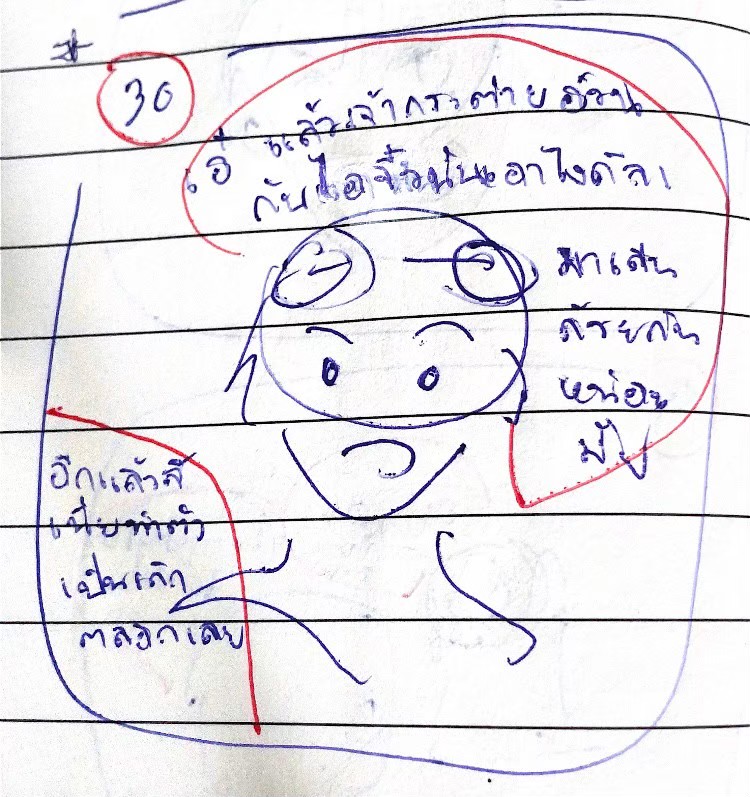 30
เอ๋ แล้วเจ้ากระต่ายอ้วน
กับไอจิ๋วนั่นเอาไงดีล่ะ
มาเล่น
ด้วยกัน
หน่อย
มั้ย
อีกแล้วสิ
เนี่ยทำตัว
เป็นเด็ก
ตลอดเลย